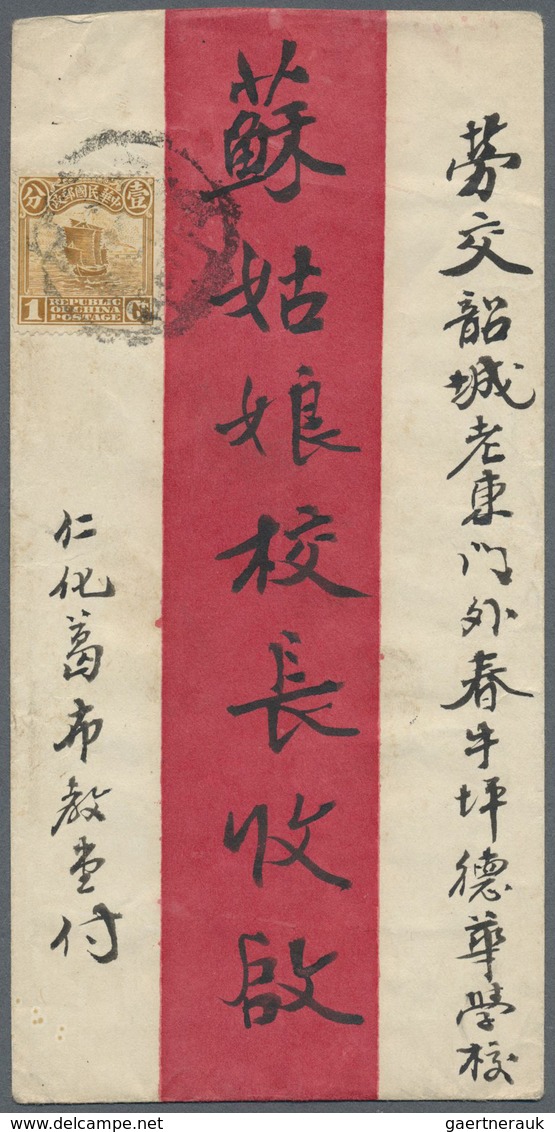 勞交韶城老東门外春牛坪德華學校
蘇姑娘校長收啟
仁化葛布教堂付
分 中華民國郵政 壹
1 REPUBLIC OF CHINA POSTAGE Ct
gaertnerauk